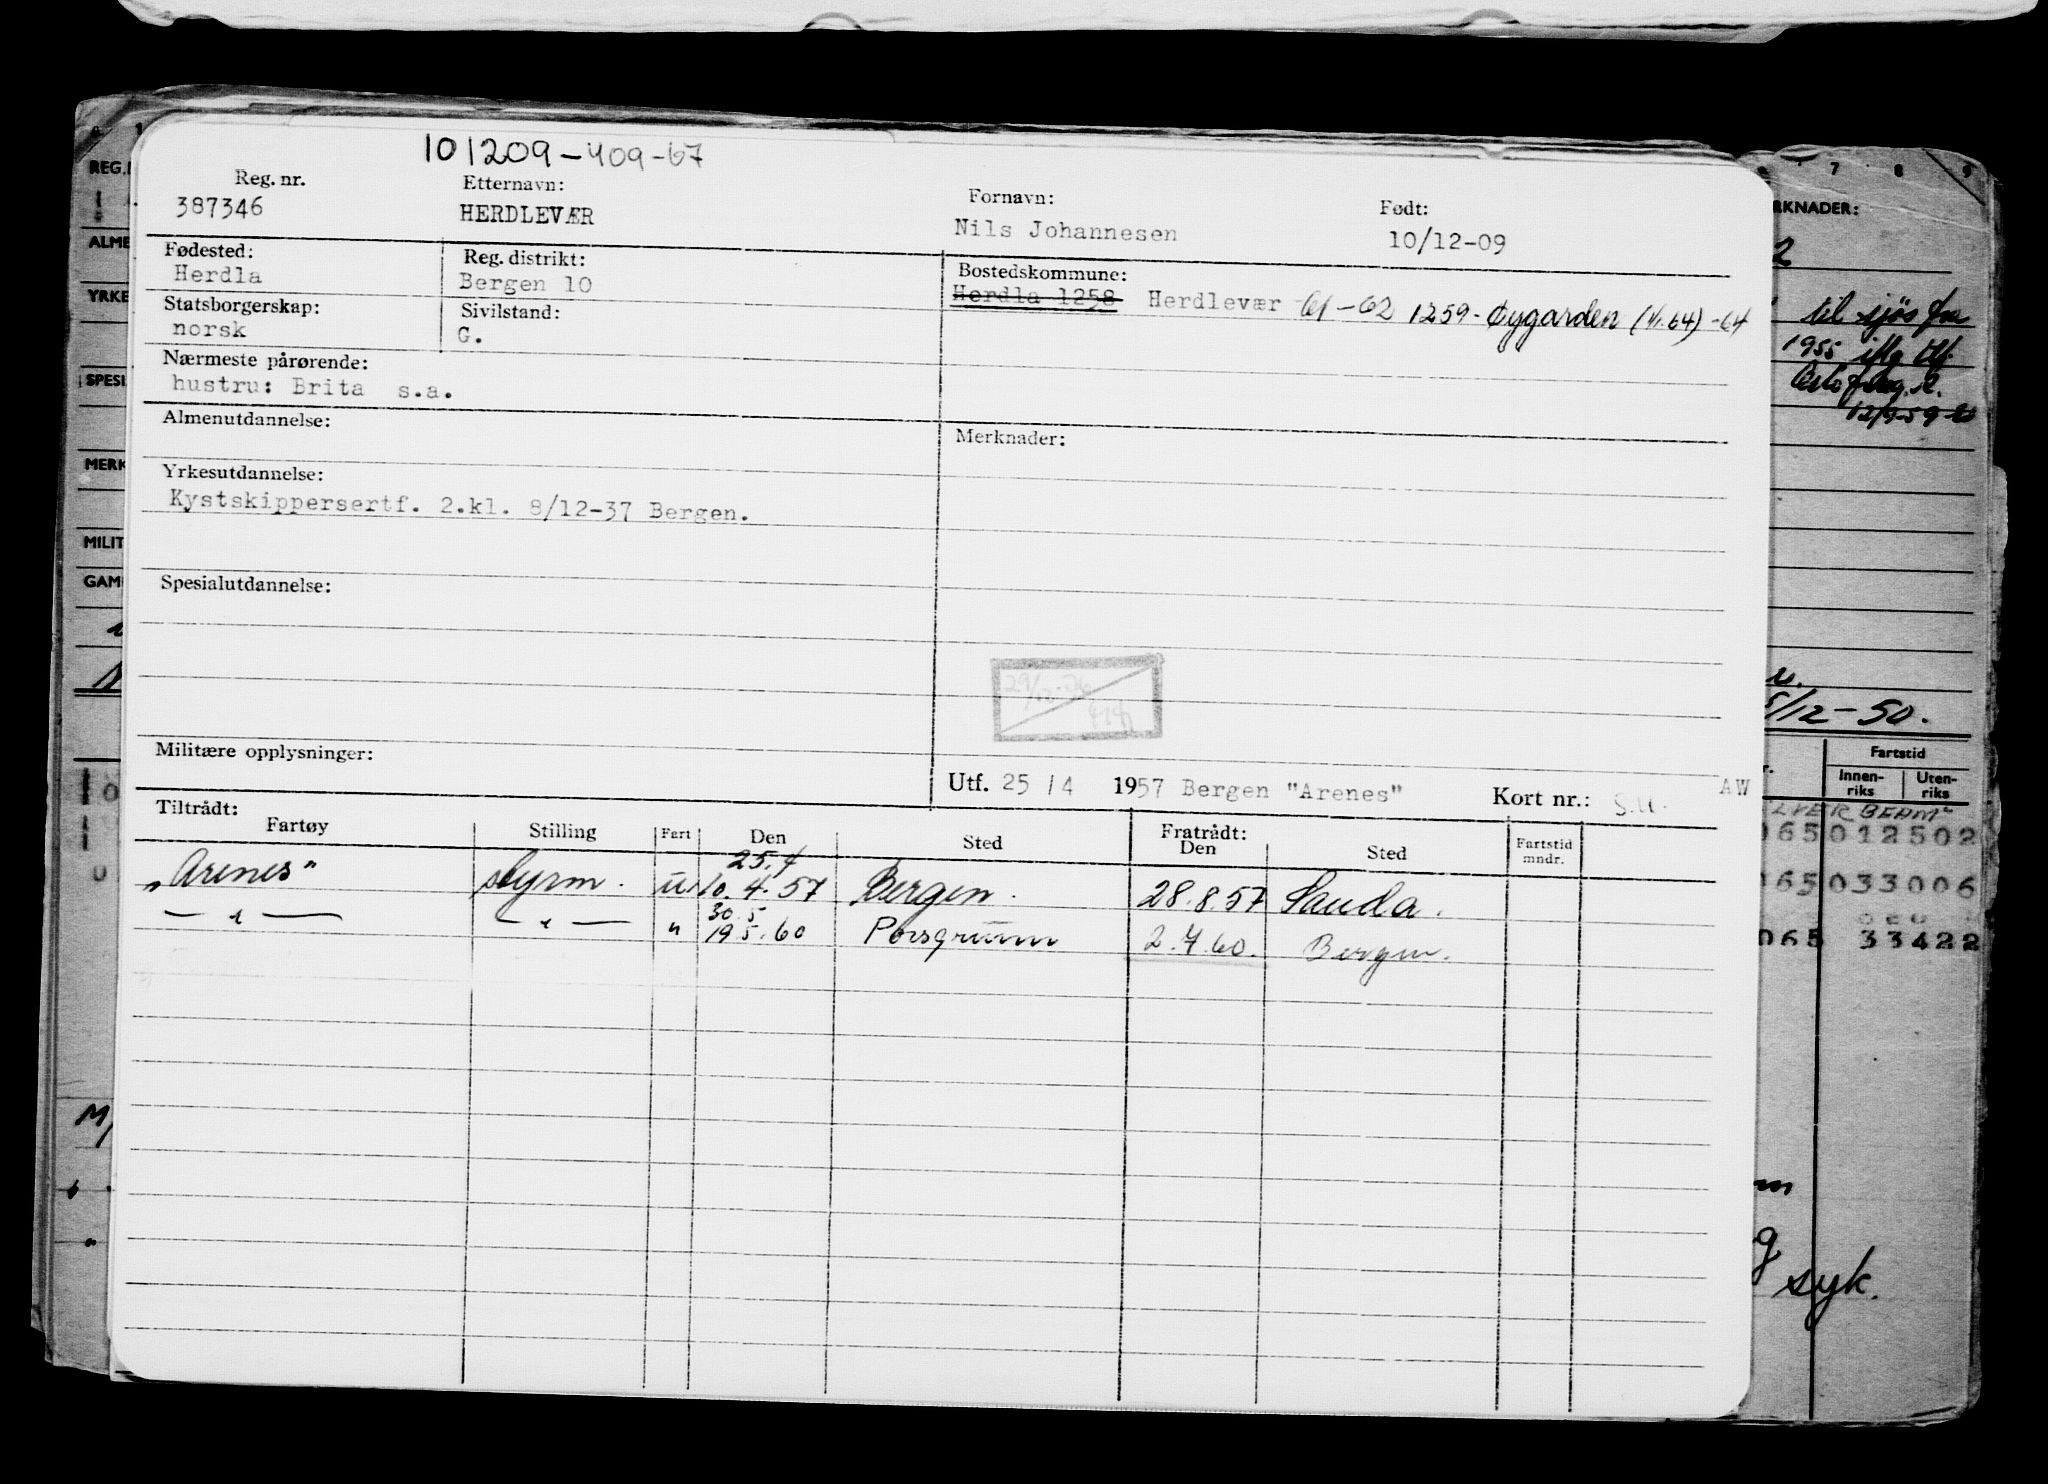 101209-409-67
Reg. nr. Etternavn: Fornavn: Født:
387346 HERDLEVÆR Nils Johannesen 10/12-09
Fødested: Reg. distrikt: Bostedskommune:
Herdla Bergen 10 Herdla 1258 Herdlevær 61-62 1259- Øygarden (1/1.64) -64
Statsborgerskap: Sivilstand:
norsk G.
Nærmeste pårørende:
hustru: Brita s.a.
Almenutdannelse: Merknader:
Yrkesutdannelse:
Kystskippersertf. 2.kl. 8/12-37 Bergen.
Spesialutdannelse:
Militære opplysninger:
Utf. 25 / 4 1957 Bergen "Arenes" Kort nr.: S.U. AW
Tiltrådt: Fratrådt:
Fartøy Stilling Fart Den Sted Den Sted Fartstid mndr.
25.4
"Arenes" styrm. u. 10.4.57 Bergen. 28.8.57 Sauda.
30.5
— " — — " — " 19.5.60 Porsgrunn 2.7.60. Bergen.
REG.
ALME
YRKE
SPESI
MERK
MILIT
GAM
M/
7 8 9
RKNADER:
2
til sjøs fra
1955 iflg tlf.
12/9-59
5/12-50.
Fartstid
Innen-riks Uten-riks
065 012502
065 033006
065 33422
syk.